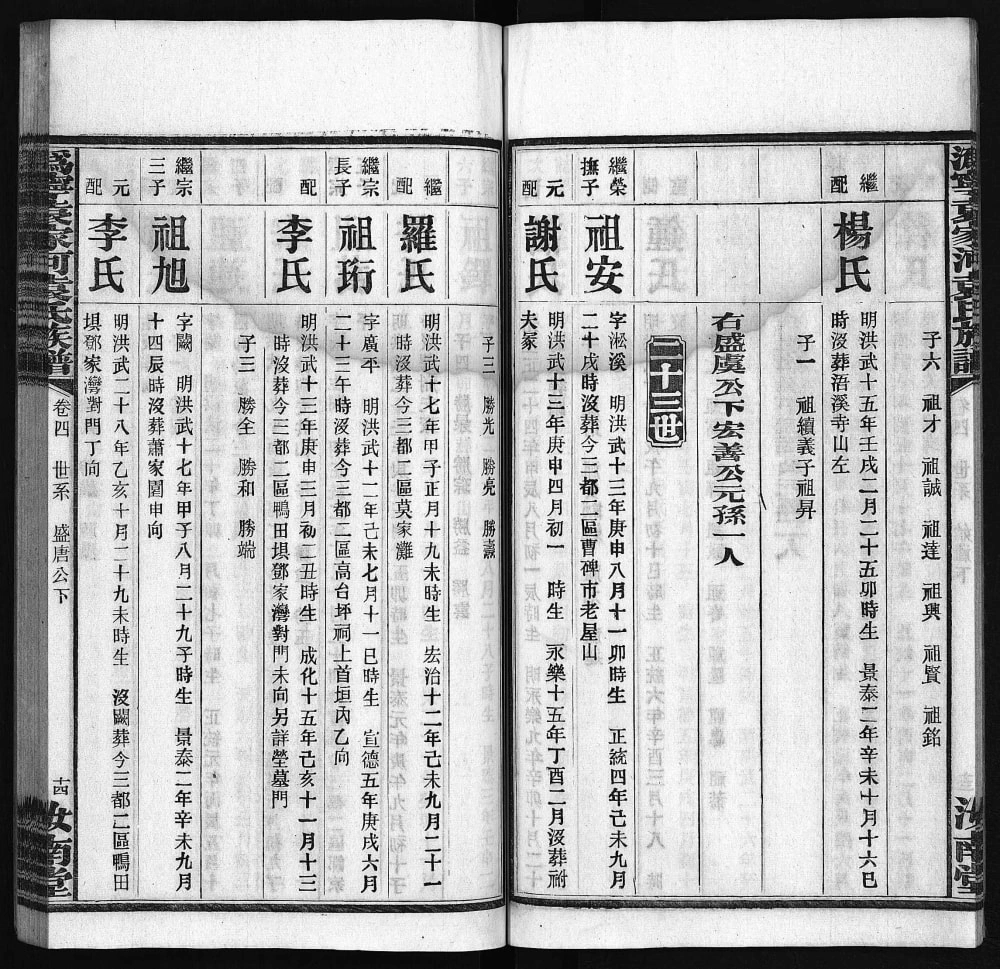 子六　祖才　祖誠　祖達　祖興　祖賢　祖銘
繼配　楊氏　明洪武十五年壬戌二月二十五卯時生　景泰二年辛未十月十六巳
時沒葬浯溪寺山左
子一　祖續義子祖昇
右盛虞公下宏善公元孫一人
二十三世
繼榮撫子　祖安　字淞溪　明洪武十三年庚申八月十一卯時生　正統四年己未九月
二十戌時沒葬今三都二區曹碑市老屋山
元配　謝氏　明洪武十三年庚申四月初一　時生　永樂十五年丁酉二月沒葬祔
夫冢
子三　勝光　勝亮　勝壽
繼配　羅氏　明洪武十七年甲子正月十九未時生　宏治十二年己未九月二十一
時沒葬今三都二區莫家灘
繼宗長子　祖珩　字廣平　明洪武十二年己未七月十一巳時生　宣德五年庚戌六月
二十三午時沒葬今三都二區高台坪祠上首垣內乙向
配　李氏　明洪武十三年庚申三月初二丑時生　成化十五年己亥十一月十三
時沒葬今三都二區鴨田垻鄧家灣對門未向另詳塋墓門
子三　勝全　勝和　勝端
繼宗三子　祖旭　字闕　明洪武十七年甲子八月二十九子時生　景泰二年辛未九月
十四辰時沒葬蕭家園申向
元配　李氏　明洪武二十八年乙亥十月二十九未時生　沒闕葬今三都二區鴨田
垻鄧家灣對門丁向
溈寧袁家河袁氏族譜　卷四　世系　盛唐公下　十四　汝南堂